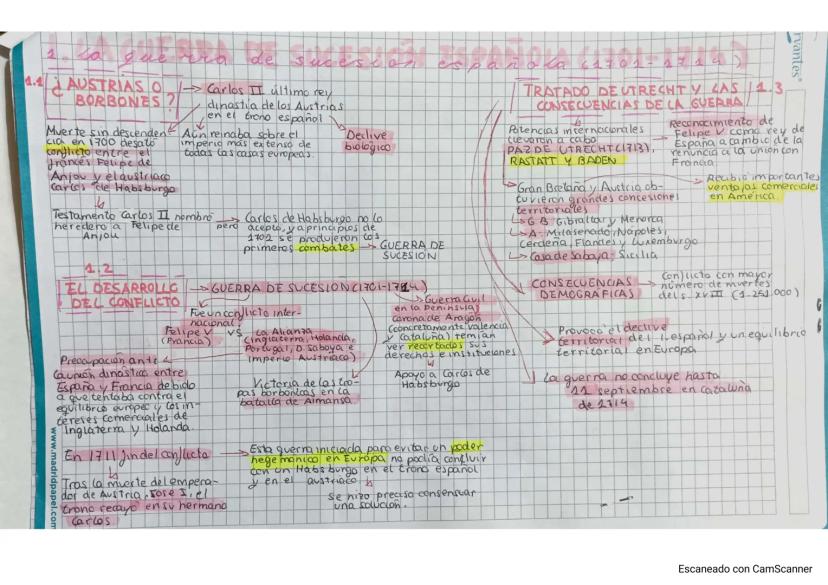 1. LA GUERRA DE SUCESIÓN ESPAÑOLA (1701-1714)
1.1 ¿AUSTRIAS O
BORBONES?
Carlos II último rey
dinastía de los Austrias
en el trono español
Muerte sin descenden
cia en 1700 desató
conflicto entre el
francés Felipe de
Anjou y el austriaco
Carlos de Habsburgo
Aún reinaba sobre el
imperio más extenso de
todas las casas europeas.
Declive
biológico
Testamento Carlos II nombró
heredero a Felipe de
Anjou
pero
Carlos de Habsburgo no lo
aceptó, y a principios de
1702 se produjeron los
primeros combates
GUERRA DE
SUCESIÓN
1.2
EL DESARROLLO
DEL CONFLICTO
GUERRA DE SUCESIÓN (1701-1714)
Fue un conflicto inter-
nacional
Felipe V
(Francia)
VS
La Alianza
(Inglaterra, Holanda,
Portugal, D. Saboya e
Imperio Austriaco)
Guerra Civil
en la Península
corona de Aragón
(concretamente Valencia
y Cataluña) temían
ver recortados sus
derechos e instituciones
Apoyo a Carlos de
Habsburgo
Preocupación ante
la unión dinástica entre
España y Francia debido
a que tentaba contra el
equilibrio europeo y los in-
tereses comerciales de
Inglaterra y Holanda.
Victoria de las tro-
pas borbónicas en la
batalla de Almansa
En 1711 fin del conflicto
Tras la muerte del empera-
dor de Austria, José I, el
trono recayó en su hermano
Carlos
Esta guerra iniciada para evitar un poder
hegemónico en Europa no podía concluir
con un Habsburgo en el trono español
y en el austriaco
Se hizo preciso consensuar
una solución.
TRATADO DE UTRECHT Y LAS
CONSECUENCIAS DE LA GUERRA
1.3
Potencias internacionales
llevaron a cabo
PAZ DE UTRECHT (1713),
RASTATT Y BADEN
Reconocimiento de
Felipe V como rey de
España a cambio de la
renuncia a la unión con
Francia.
Gran Bretaña y Austria ob-
tuvieron grandes concesiones
territoriales
G.B. Gibraltar y Menorca
A- Milanesado, Nápoles,
Cerdeña, Flandes y Luxemburgo
Casa de Saboya: Sicilia
Recibió importantes
ventajas comerciales
en América.
CONSECUENCIAS
DEMOGRÁFICAS
Conflicto con mayor
número de muertes
del s. XVIII (1.251.000)
Provocó el declive
territorial del I. español y un equilibrio
territorial en Europa
La guerra no concluye hasta
11 septiembre en Cataluña
de 1714
www.madridpapel.com
Escaneado con CamScanner